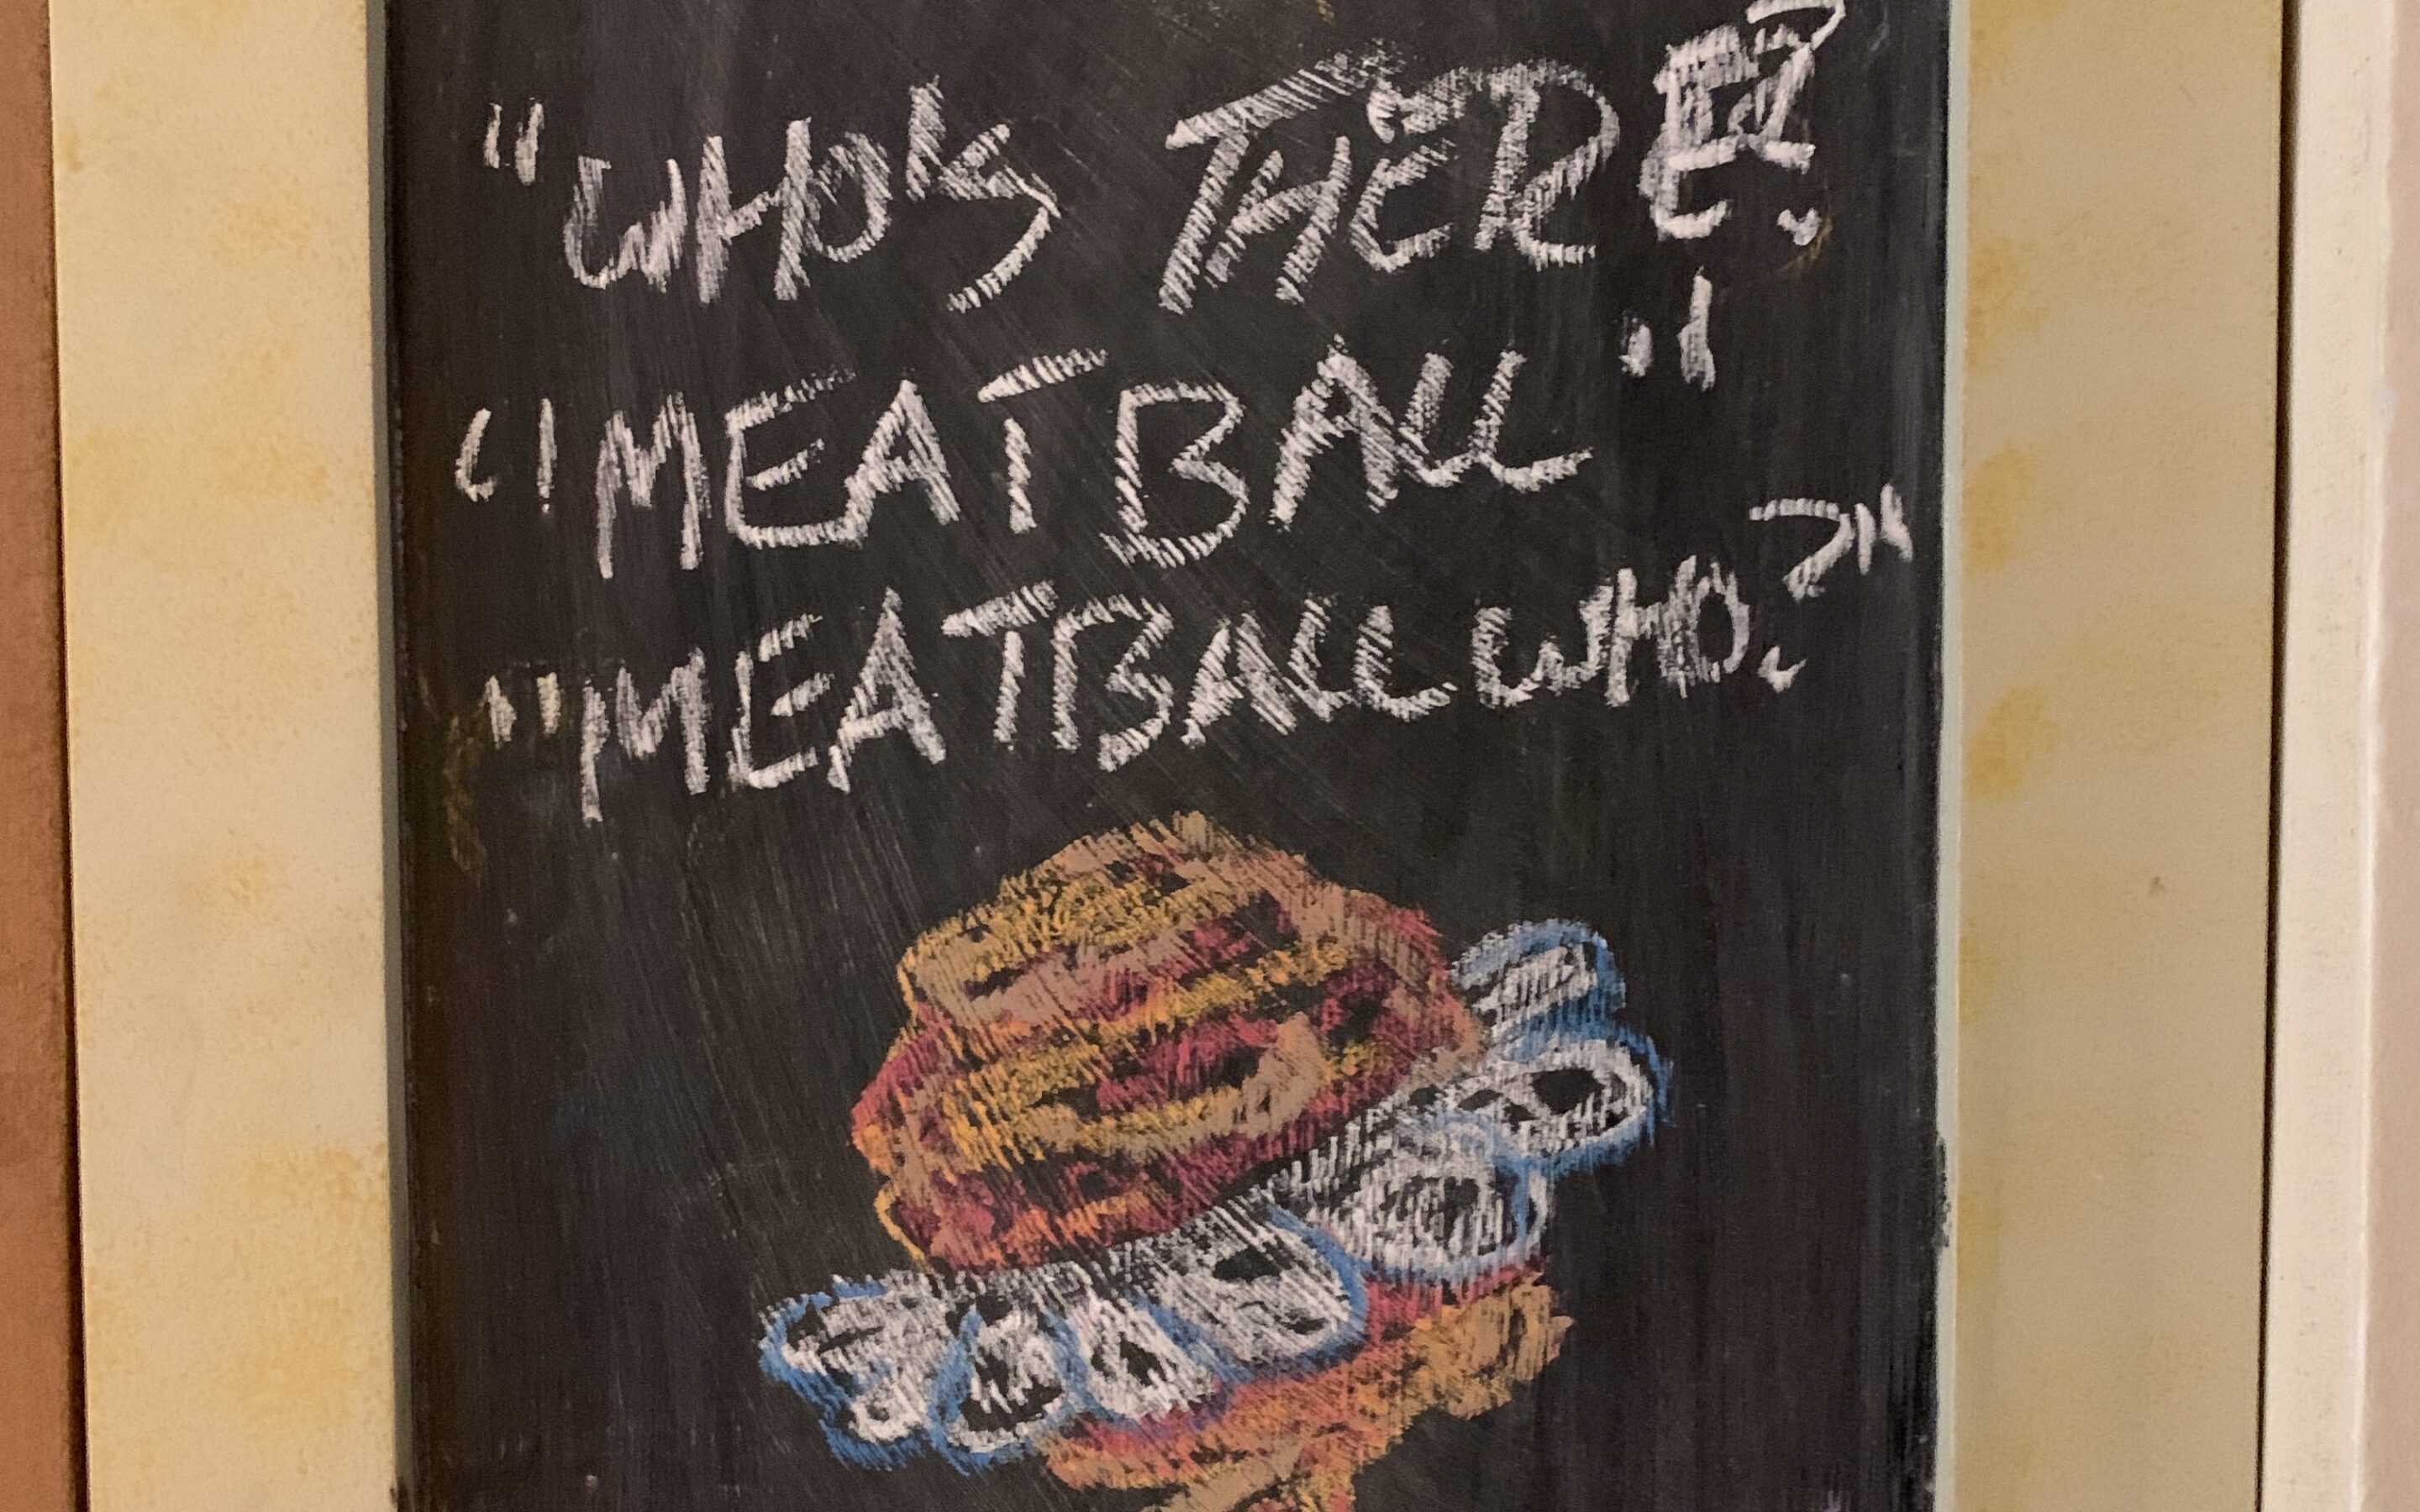 "WHO'S THERE?
"MEATBALL"
"MEATBALL WHO?"